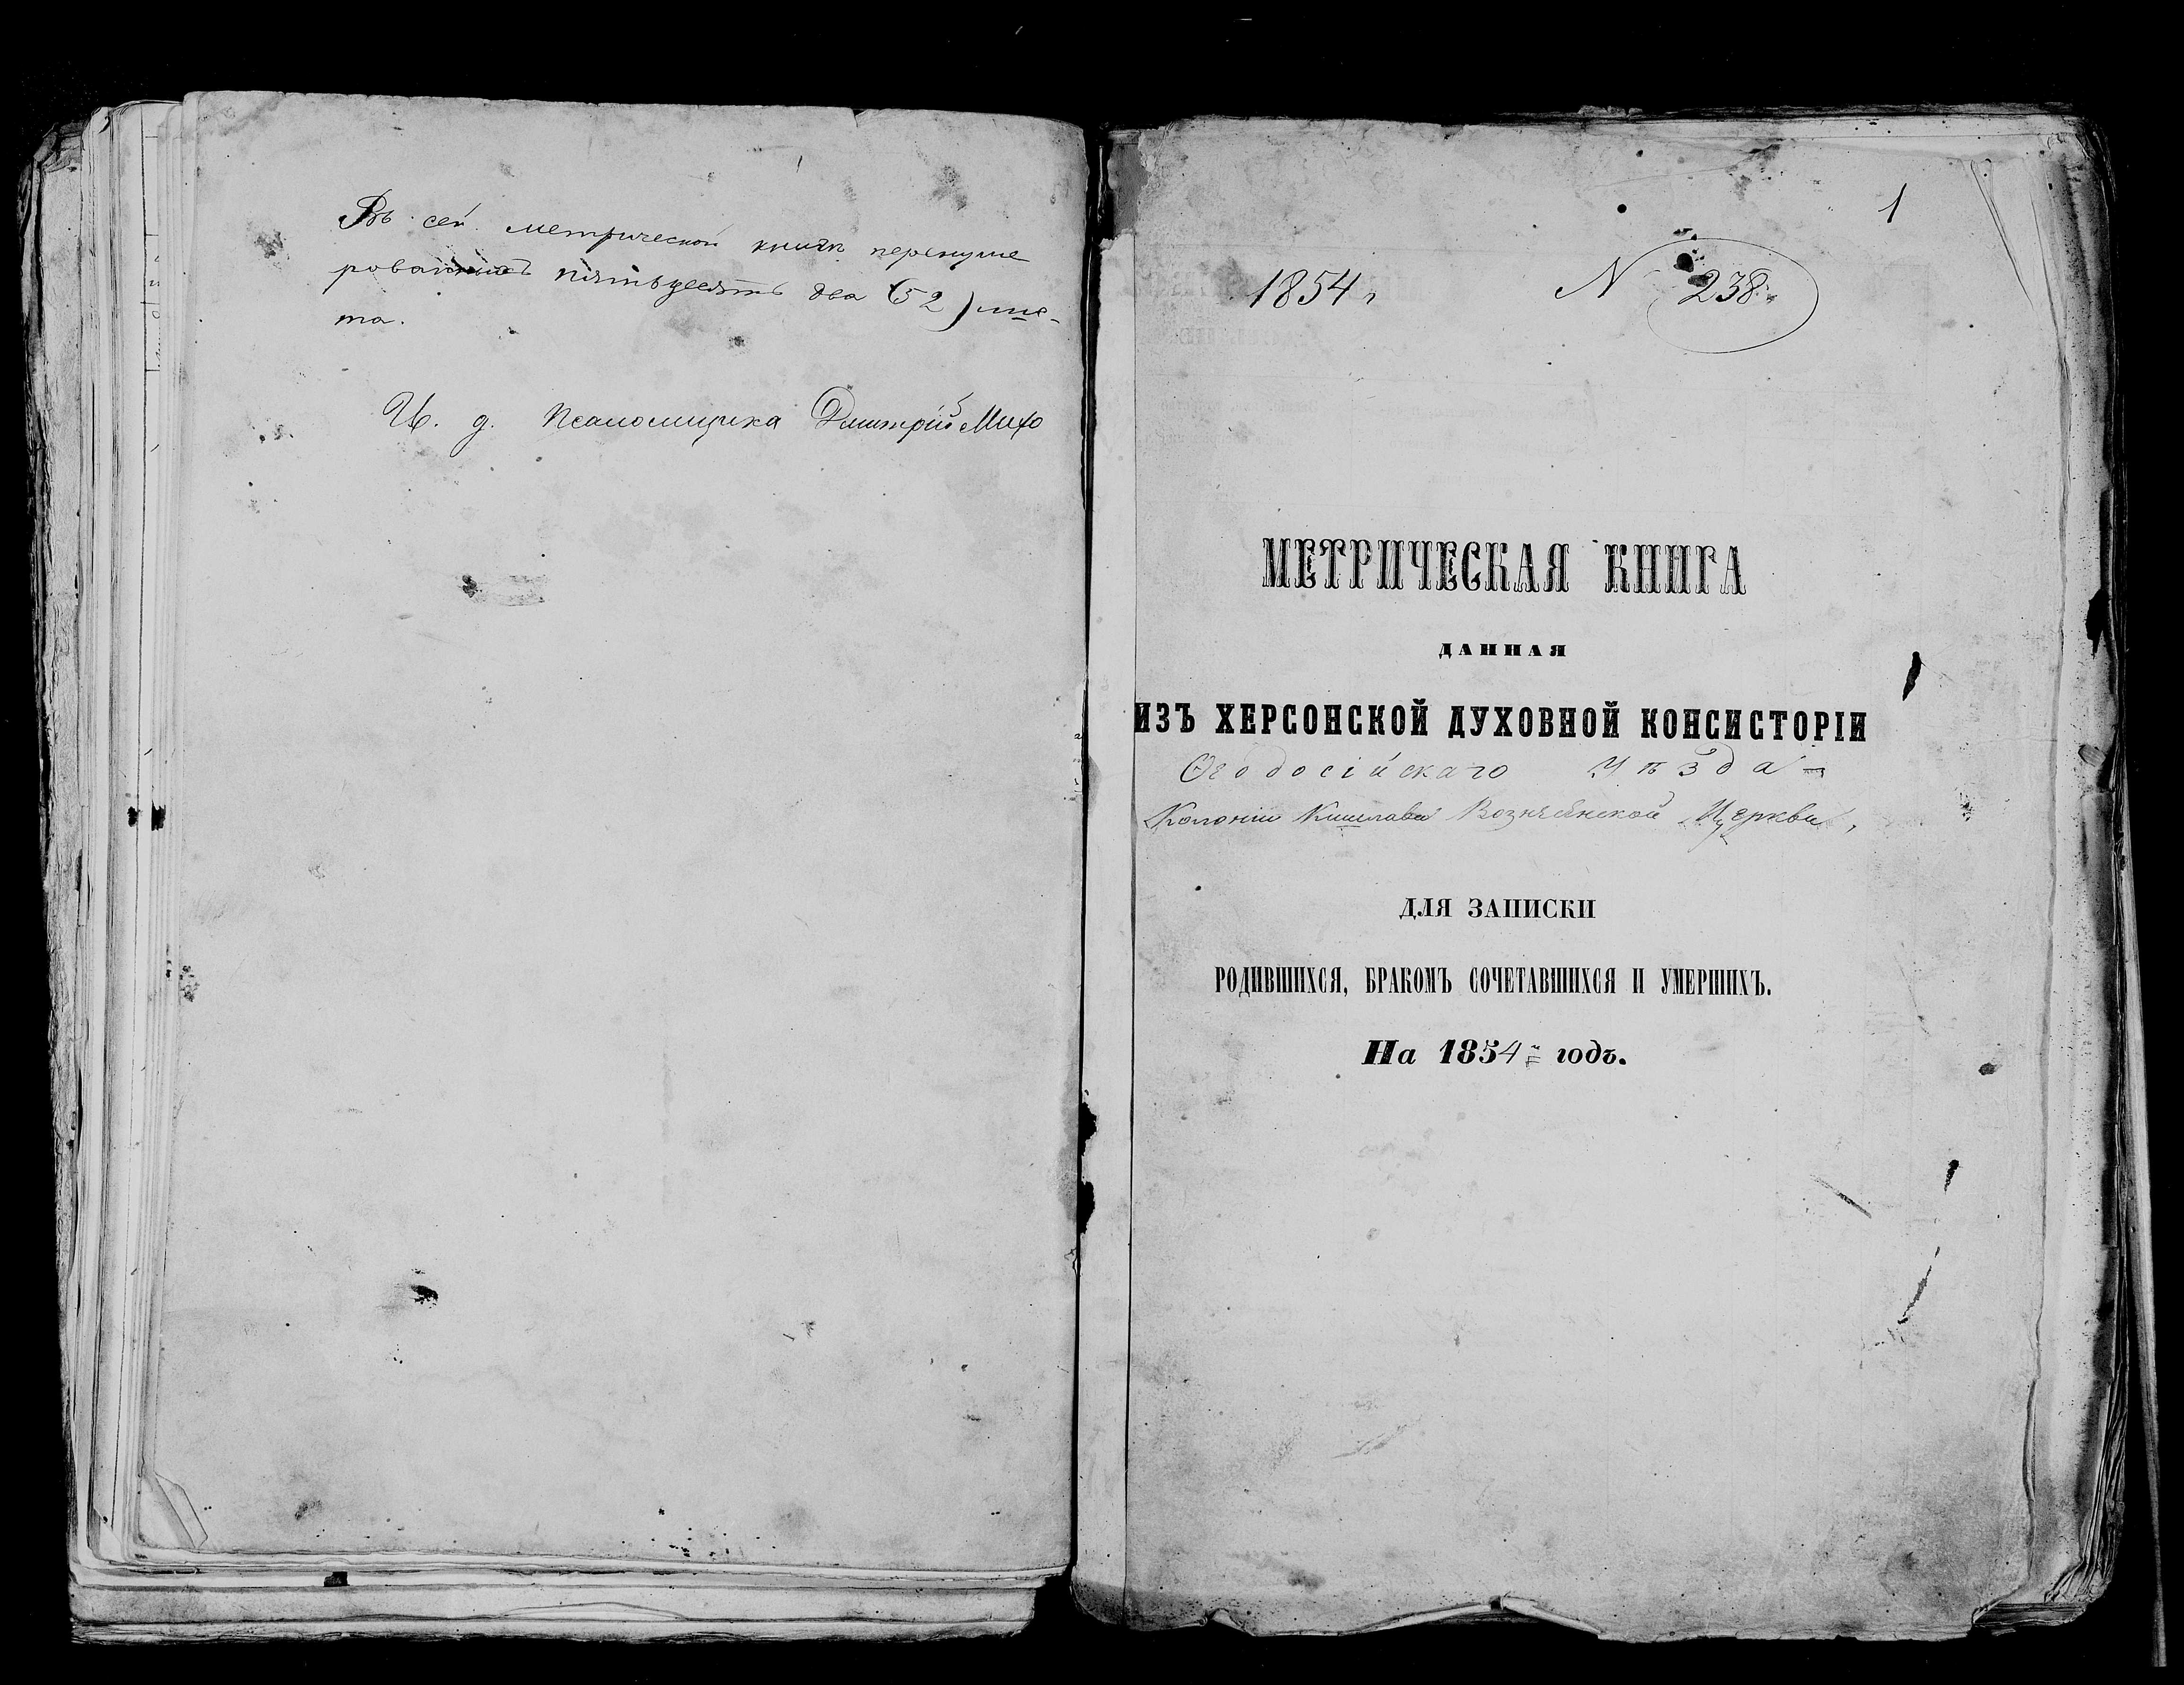 Въ сей метрической книгѣ перенуме
рованныхъ пятьдесятъ два (52) лис-
та.
И. д. псаломщика Дмитрій
1
1854 г N 238.
МЕТРИЧЕСКАЯ КНИГА
ДАННАЯ
ИЗЪ ХЕРСОНСКОЙ ДУХОВНОЙ КОНСИСТОРІИ
Ѳеодосійскаго Уѣзда
Колоніи Кишлава Вознесенской Церкви,
ДЛЯ ЗАПИСКИ
РОДИВШИХСЯ, БРАКОМЪ СОЧЕТАВШИХСЯ И УМЕРШИХЪ.
На 1854й годъ.